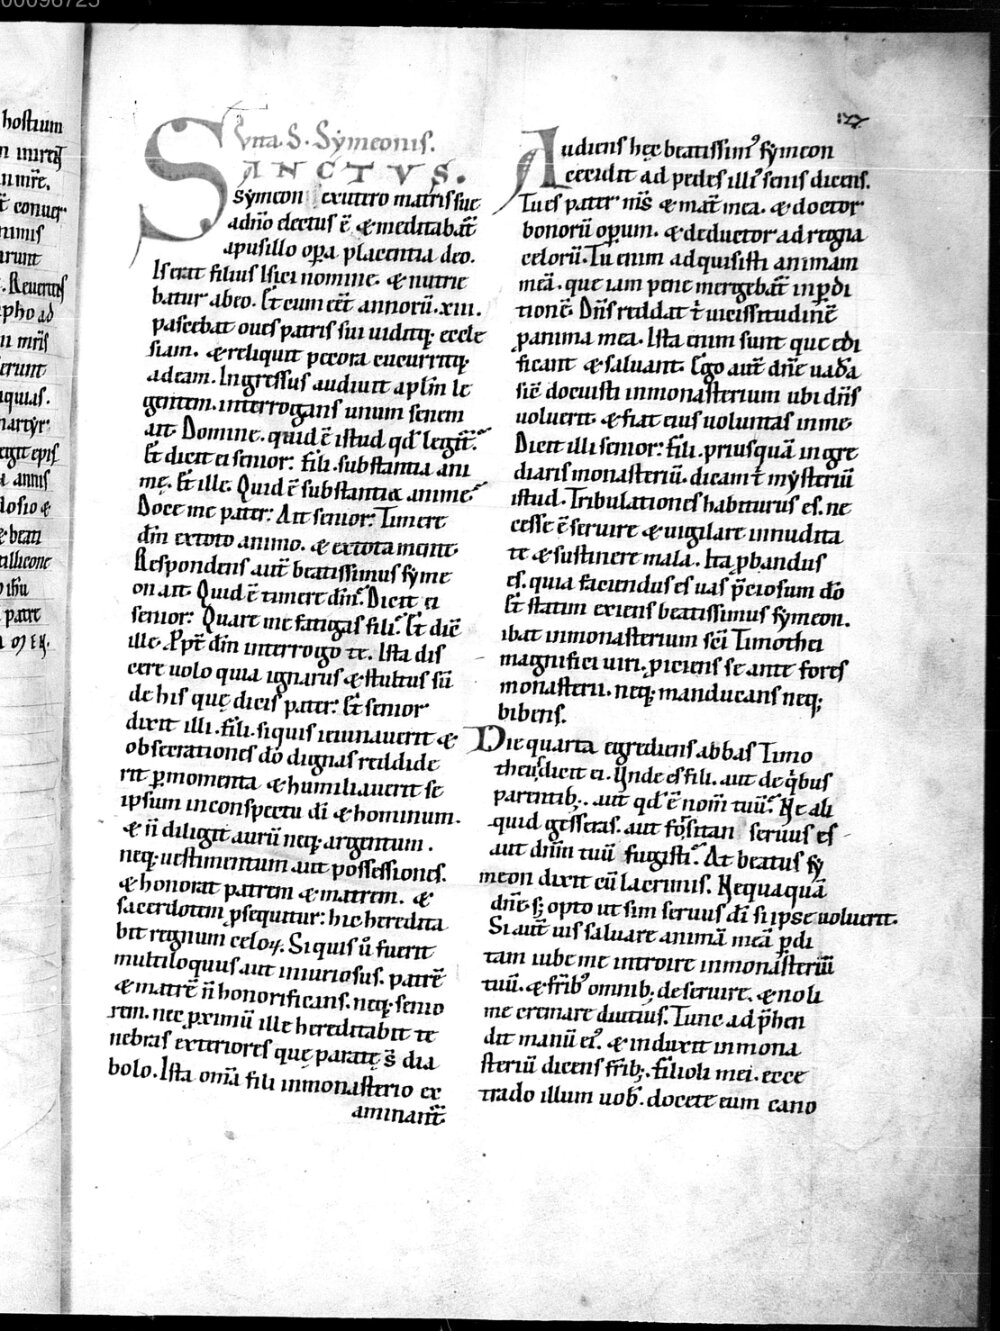 00098725
hostium
conuer
erunt
martyr
annis
patre
Vita. S. Symeonis.
SANCTVS.
Symeon exutero matris sue
adnō electus ē. & meditabat̄
apusillo oꝑa placentia deo.
Iserat filius Isiei nomine. & nutrie
batur abeo. Et cum eēt annorū .xiii.
pascebat oues patris sui uiditq; eccle
siam. & reliquit pecora cucurritq;
adeam. Ingressus audiuit aplm̄ le
gentem. interrogans unum senem
ait. Domine. quid ē istud qđ legit̄.
Et dicit ei senior. fili. substantia ani
mę. Et ille. Quid ē substantia anime
Doce me pater. Ait senior. Timere
dm̄ extoto animo. & extota mente.
Respondens aut̄ beatissimus syme
on ait. Quid ē timere dm̄. Dicit ei
senior. Quare me fatigas fili. Et dic̄
ille. Ppt̄ dm̄ interrogo te. Ista dis
cere uolo quia ignarus & stultus sū
de his quę dicis pater. Et senior
dixit illi. fili. siquis ieiunauerit &
obsecrationes dō dignas reddide
rit ꝑ momenta & humiliauerit se
ipsum inconspectu dī & hominum.
& n̄ diligit aurū neq; argentum.
neq; uestimentum aut possessiones.
& honorat patrem & matrem. &
sacerdotem ꝓsequitur. hic heredita
bit regnum celoꝝ. Siquis ů fuerit
multiloquus aut iniuriosus. patrē
& matrē n̄ honorificans. neq; senio
rem. nec ꝓximū ille hereditabit te
nebras exteriores quę paratę s̄ dia
bolo. Ista om̄a fili inmonasterio ex
aminant̄.
Audiens hęc beatissim' symeon
cecidit ad pedes illi' senis dicens.
Tu es pater m̄s & mat̄ mea. & doctor
bonorū oꝑum. & deductor ad regna
celorū. Tu enim adquisisti animam
meā. que iam pene mergebat̄ inꝑdi
tionē. Dn̄s reddat t̄ uicissitudinē
ꝓanima mea. Ista enim sunt que edi
ficant & saluant. Ego aut̄ dn̄e uadā
sic̄ docuisti inmonasterium ubi dn̄s
uoluerit. & fiat eius uoluntas in me.
Dicit illi senior. fili. priusquā ingre
diaris monasteriū. dicam t̄ mysteriū
istud. Tribulationes habiturus es. ne
cesse ē seruire & uigilare innudita
te & sustinere mala. Ita ꝓbandus
es. quia faciendus es uas p̄ciosum dō
Et statim exiens beatissimus symeon.
ibat inmonasterium scī Timothei
magnifici uiri. ꝓiciens se ante fores
monasterii. neq; manducans neq;
bibens.
Die quarta egrediens abbas Timo
theus dicit ei. Unde es fili. aut de qͥbus
parentib;. aut qđ ē nom̄ tuū. Ne ali
quid gesseras. aut forsitan seruus es
aut dnm̄ tuū fugisti. At beatus sy
meon dixit cū lacrimis. Nequaquā
dn̄e. s; opto ut sim seruus dī si ipse uoluerit.
Si aut̄ uis saluare animā meā ꝑdi
tam iube me introire inmonasteriū
tuū. & frīb' omnib; deseruire. & noli
me cremare diutius. Tunc adp̄hen
dit manū ei'. & induxit inmona
steriū dicens frīb;. filioli mei. ecce
trado illum uob̄. docete eum cano